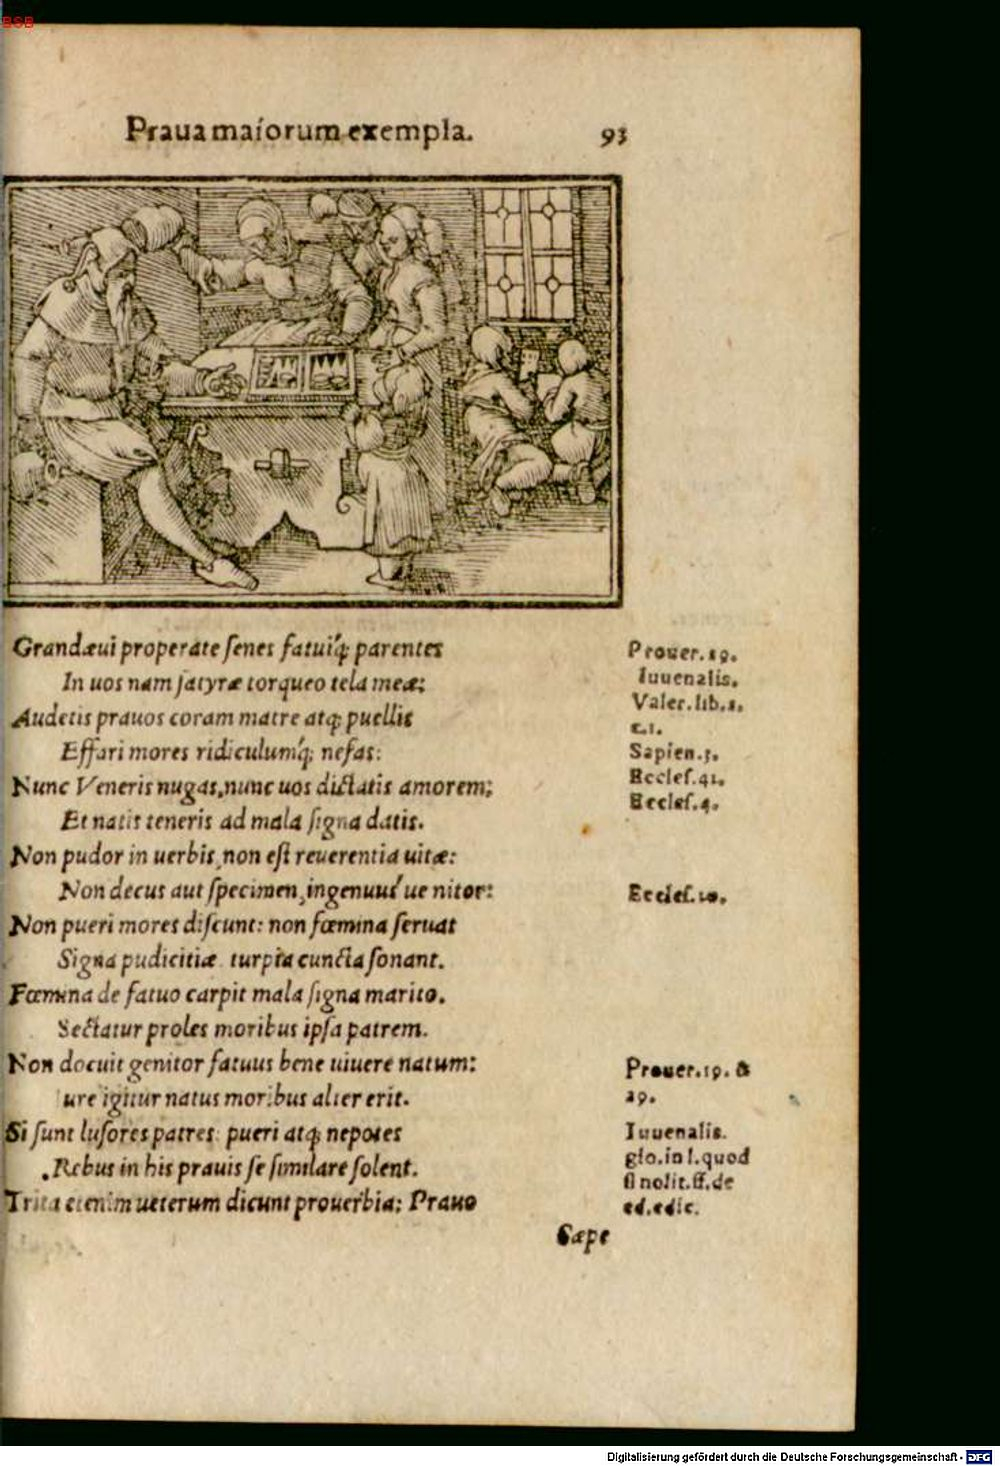 BSB
Praua maiorum exempla.
93
Grandæui properate ſenes fatuiq́; parentes
In uos nam ſatyræ torqueo tela meæ:
Audetis prauos coram matre atq; puellis
Effari mores ridiculumq́; nefas:
Nunc Veneris nugas, nunc uos dictatis amorem:
Et natis teneris ad mala ſigna datis.
Non pudor in uerbis, non eſt reuerentia uitæ:
Non decus aut ſpecimen, ingenuuſ́ue nitor:
Non pueri mores diſcunt: non fœmina ſeruat
Signa pudicitiæ turpia cuncta ſonant.
Fœmina de fatuo carpit mala ſigna marito.
Sectatur proles moribus ipſa patrem.
Non docuit genitor fatuus bene uiuere natum:
ure igitur natus moribus alter erit.
Si ſunt luſores patres: pueri atq; nepotes
Rebus in his prauis ſe ſimilare ſolent.
Trita etenim ueterum dicunt prouerbia: Prauo
Sæpe
Prouer. 19.
Iuuenalis.
Valer. lib. 2.
c. 1.
Sapien. 5.
Eccleſ. 41.
Eccleſ. 4.
Eccleſ. 10.
Prouer. 19. &
29.
Iuuenalis.
glo. in l. quod
ſi nolit. ff. de
ed. edic.
Digitalisierung gefördert durch die Deutsche Forschungsgemeinschaft - DFG